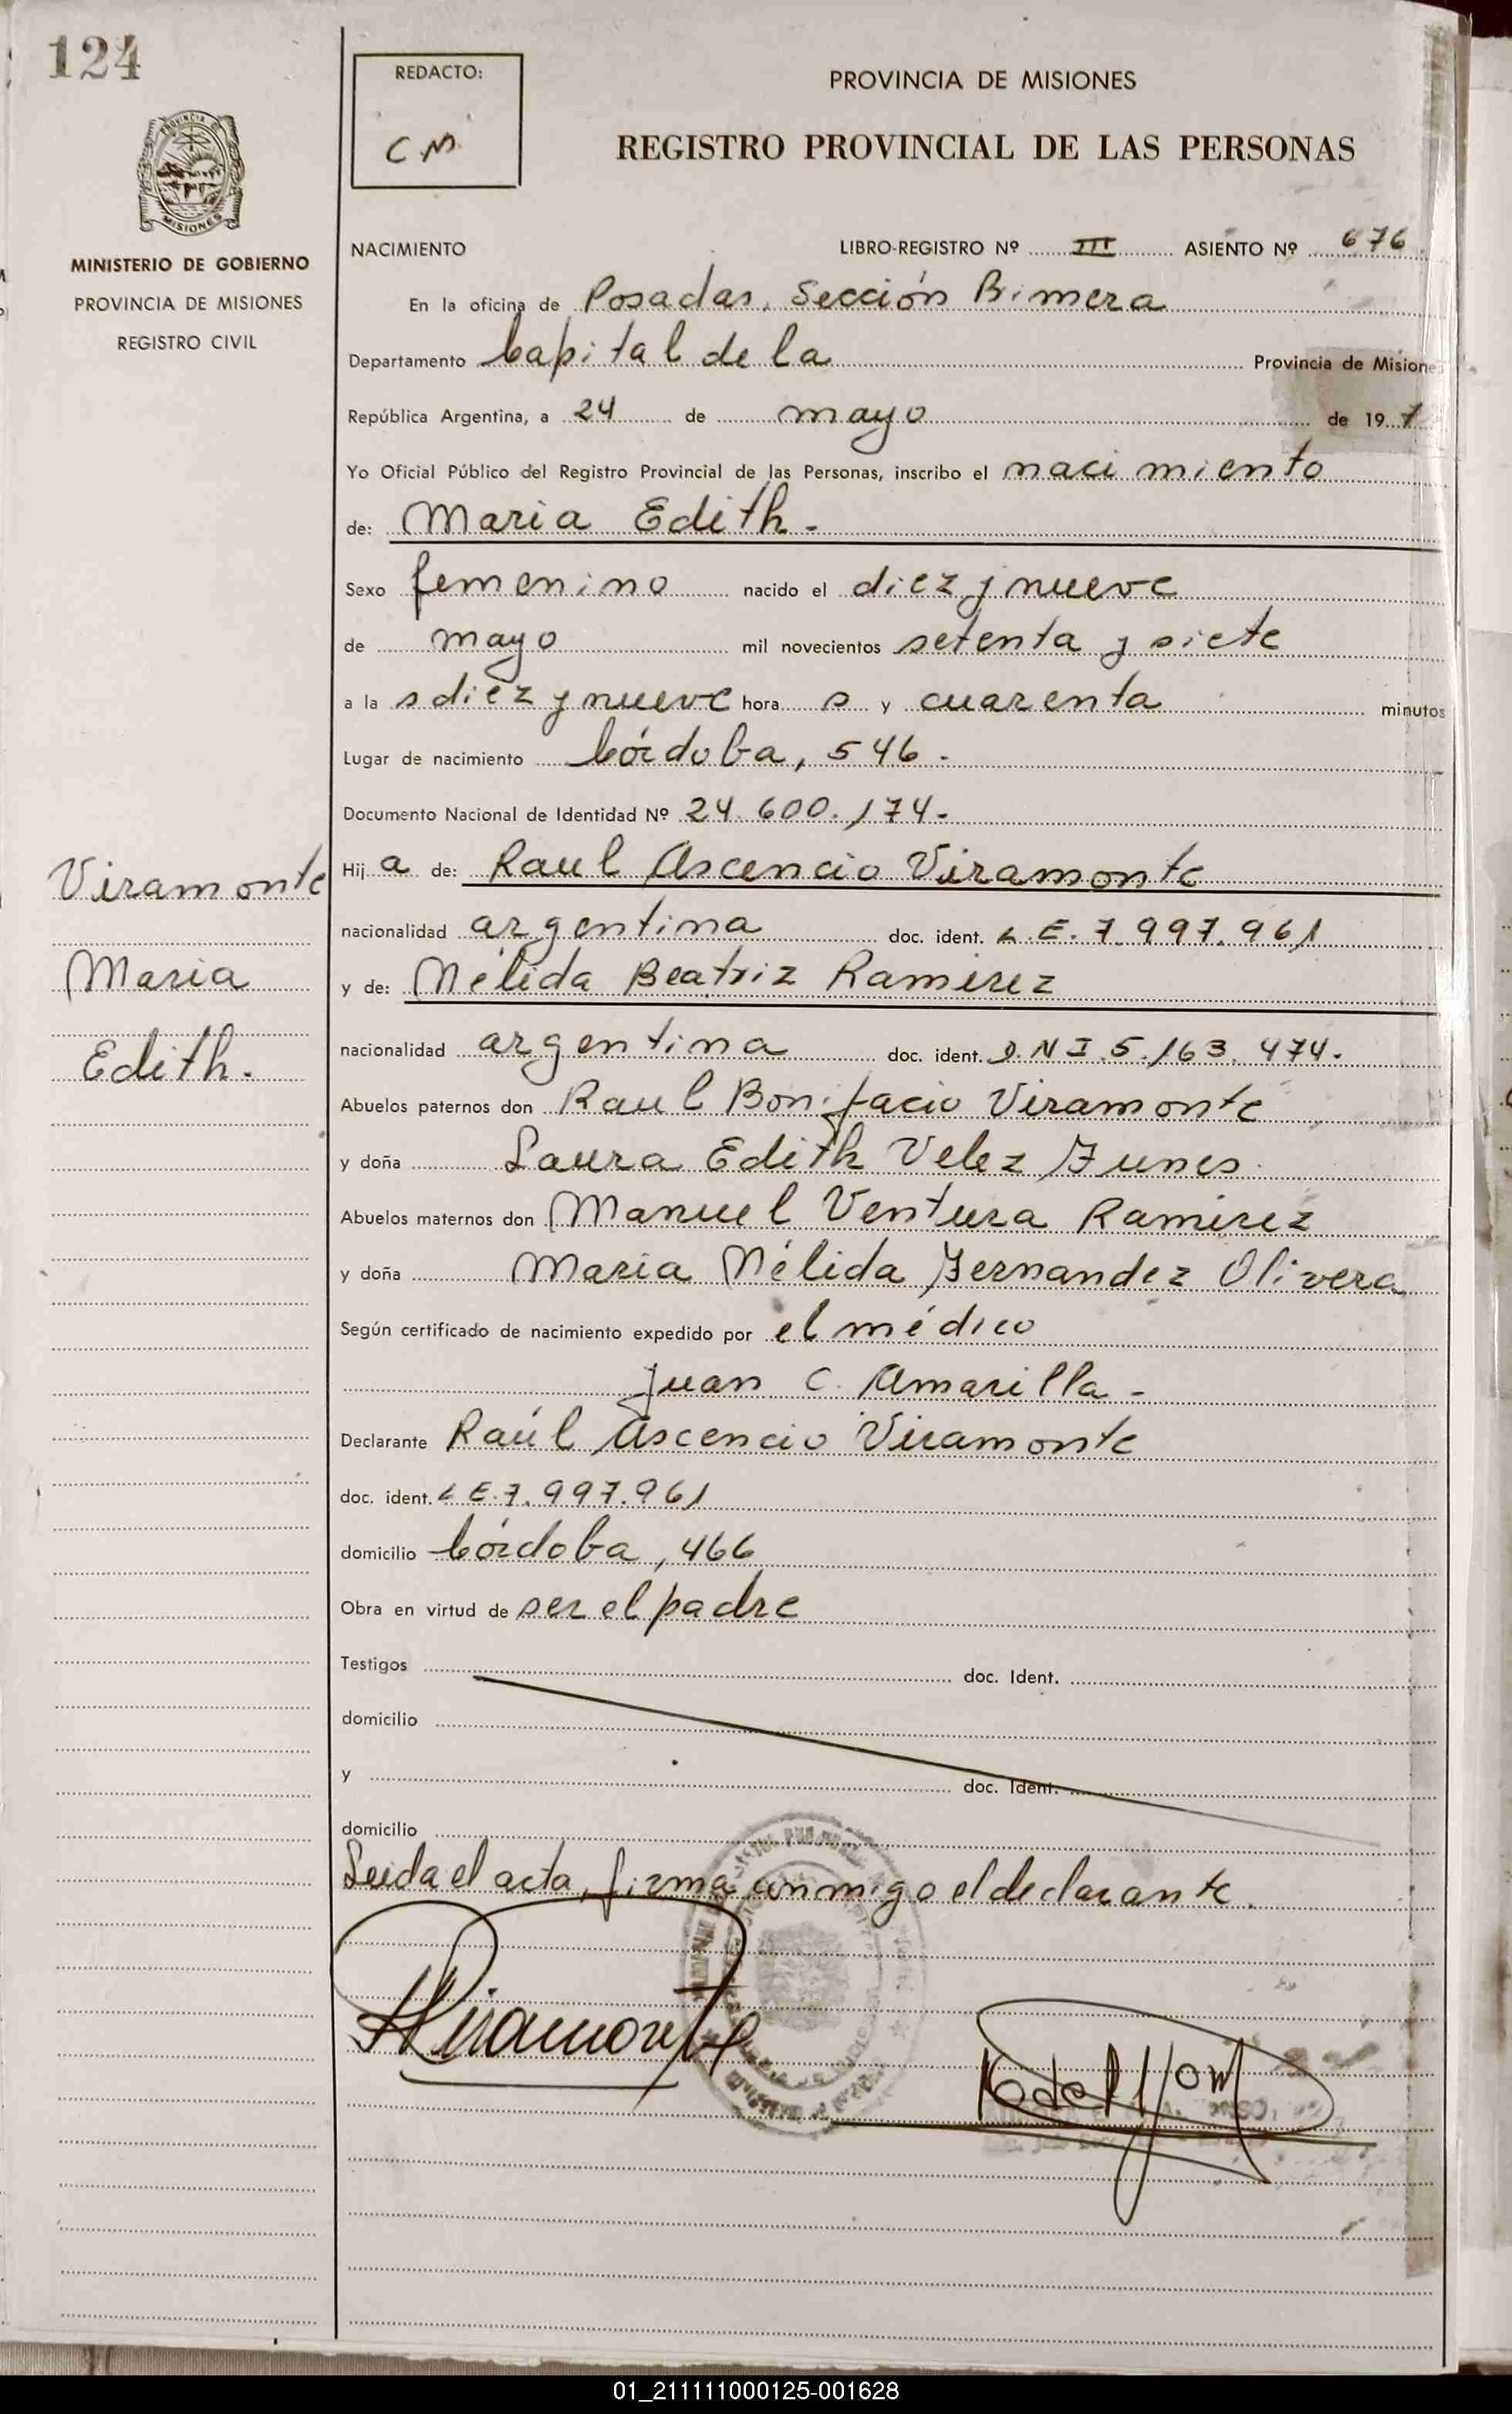 124
REDACTO:
CM
PROVINCIA DE MISIONES
REGISTRO PROVINCIAL DE LAS PERSONAS
MISIONES
MINISTERIO DE GOBIERNO
PROVINCIA DE MISIONES
REGISTRO CIVIL
NACIMIENTO LIBRO-REGISTRO Nº III ASIENTO Nº 676
En la oficina de Posadas, Sección Primera
Departamento Capital de la Provincia de Misiones
República Argentina, a 24 de mayo de 19 7
Yo Oficial Público del Registro Provincial de las Personas, inscribo el nacimiento
de: Maria Edith.
Sexo femenino nacido el diez y nueve
de mayo mil novecientos setenta y siete
a la s diez y nueve hora s y cuarenta minutos
Lugar de nacimiento Córdoba, 546.
Documento Nacional de Identidad Nº 24.600.174.
Hij a de: Raul Ascencio Viramonte
nacionalidad argentina doc. ident. L.E. 7.997.961
y de: Nélida Beatriz Ramirez
nacionalidad argentina doc. ident. D.N.I. 5.163.474.
Abuelos paternos don Raul Bonifacio Viramonte
y doña Laura Edith Velez Funes
Abuelos maternos don Manuel Ventura Ramirez
y doña Maria Nélida Fernandez Olivera
Según certificado de nacimiento expedido por el médico
Juan C. Amarilla -
Declarante Raúl Ascencio Viramonte
doc. ident. L E. 7.997.961
domicilio Córdoba, 466
Obra en virtud de ser el padre
Testigos doc. Ident.
domicilio
y doc. Ident.
domicilio
Leida el acta, firma conmigo el declarante.
Viramonte
Viramonte
Maria
Edith.
01_211111000125-001628